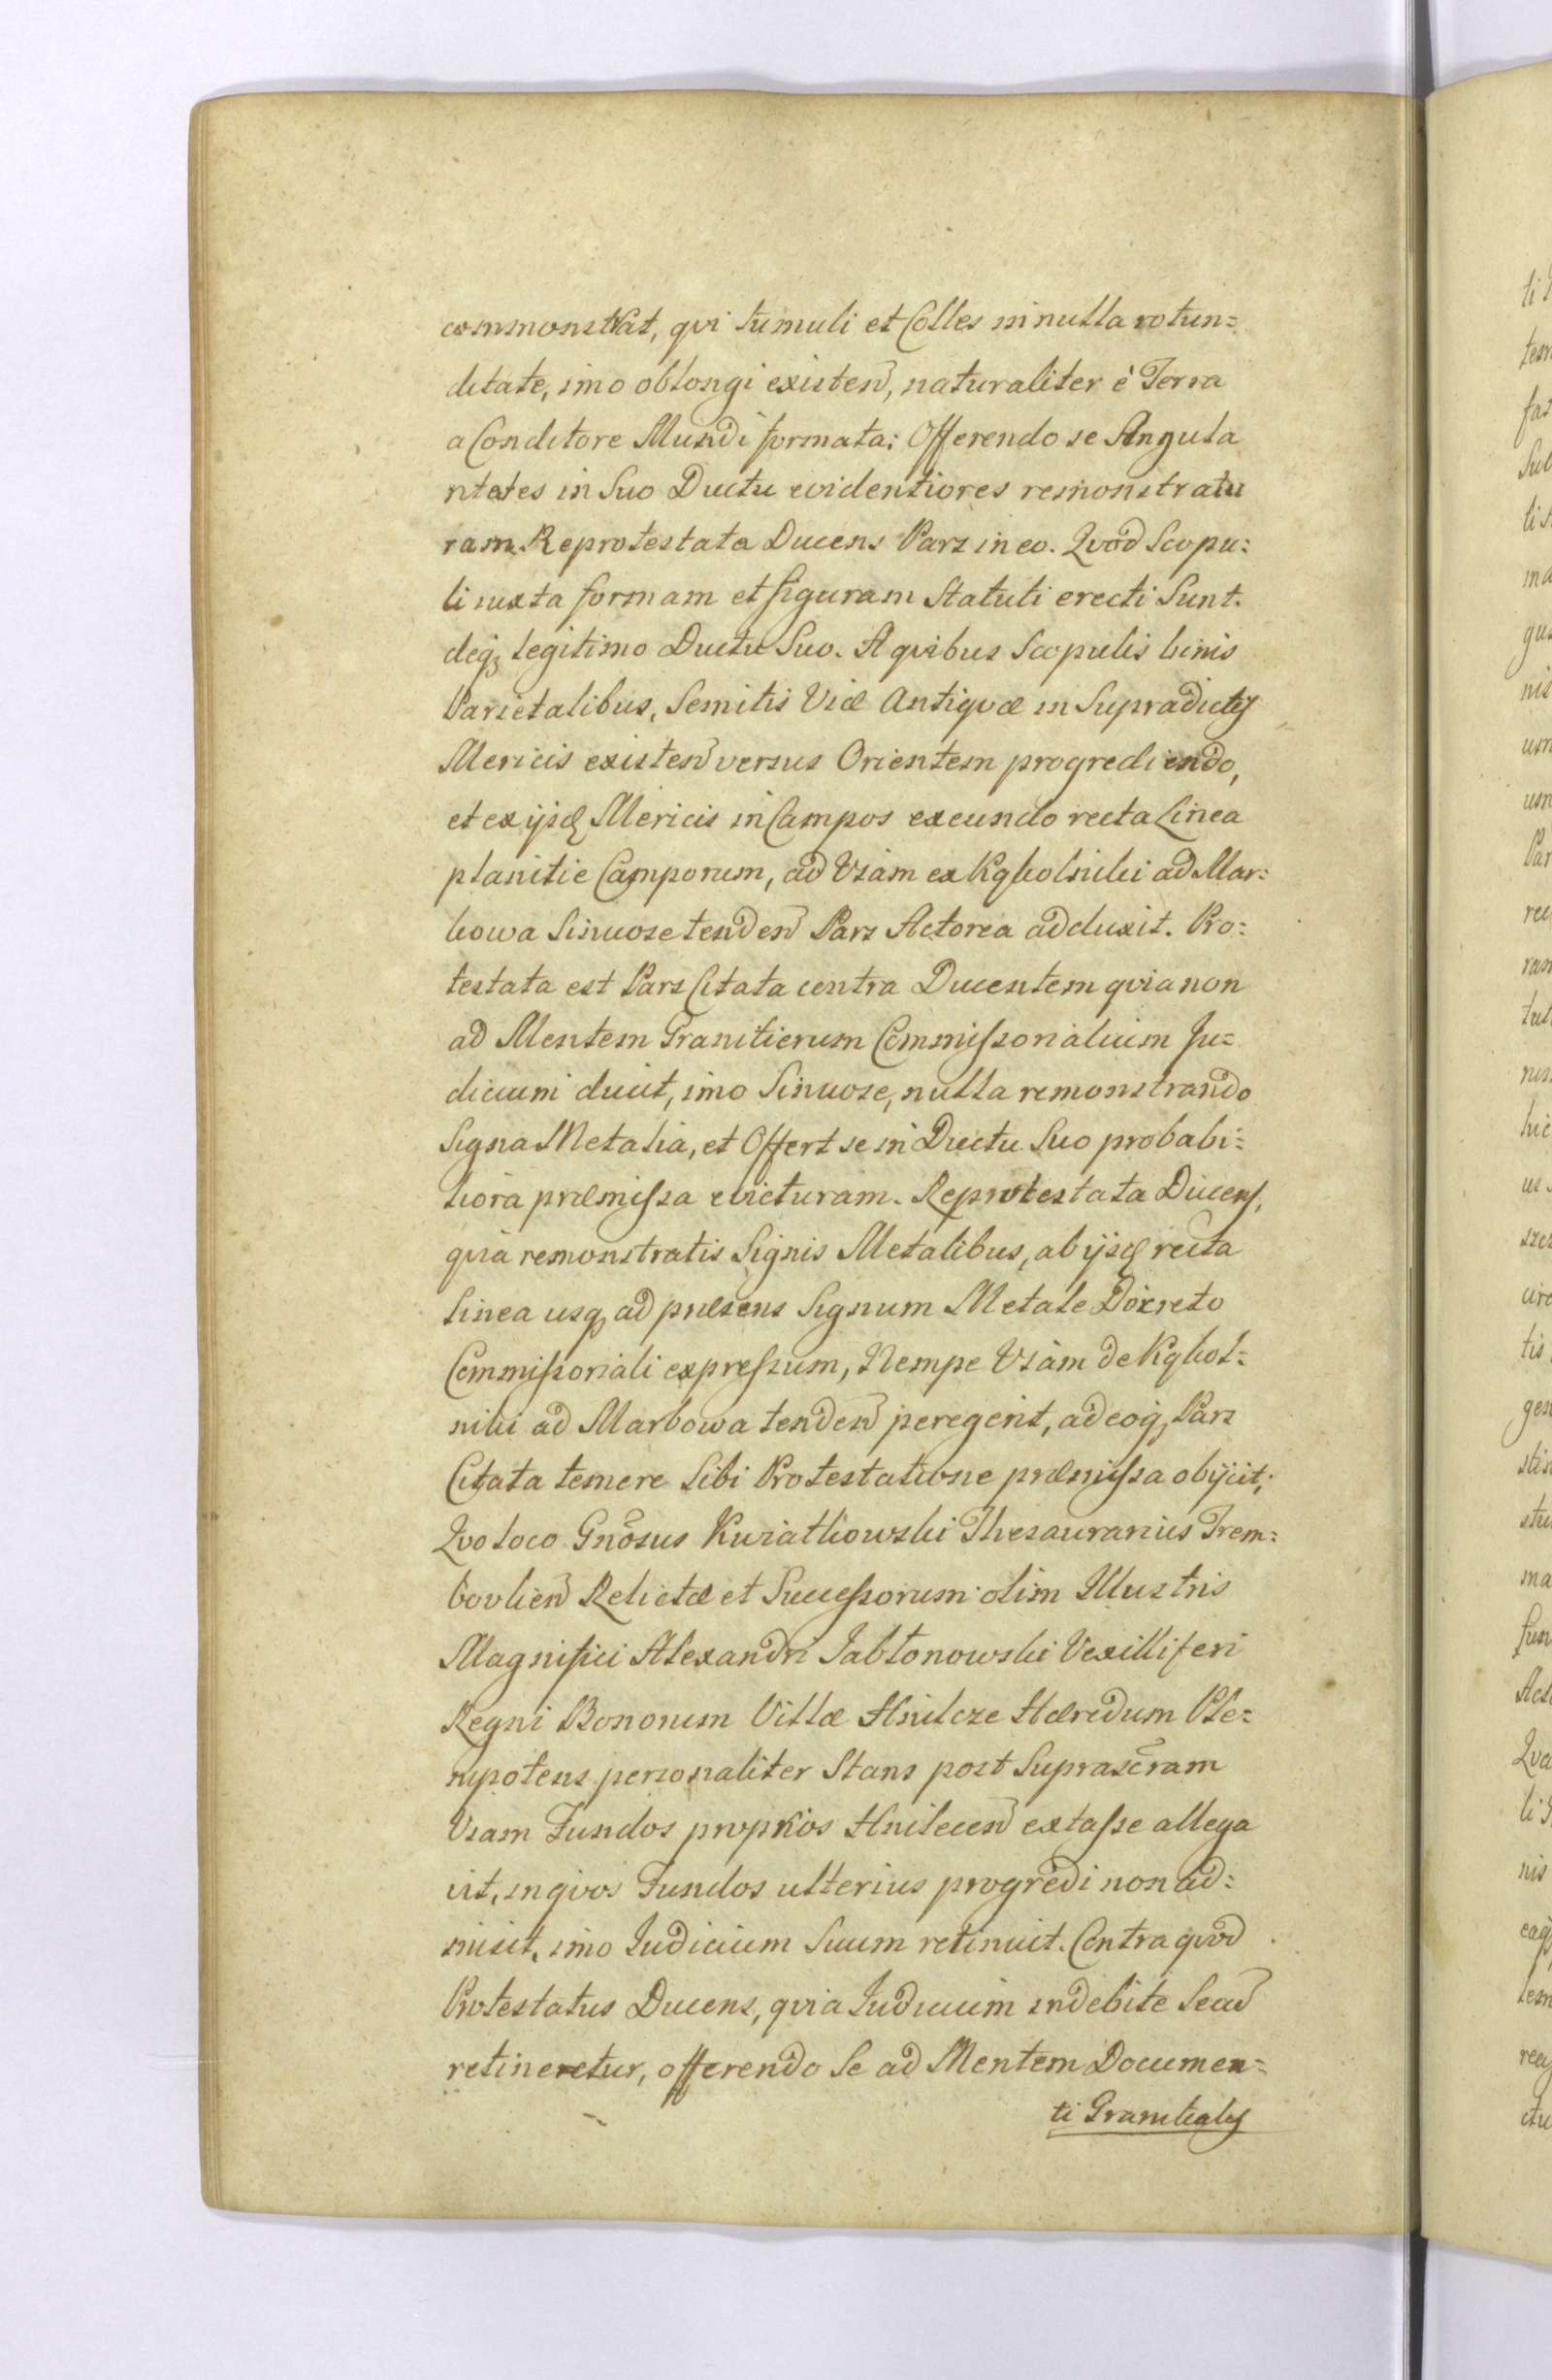 commonstrat, qvi tumuli et Colles in nulla rotun=
ditate, imo oblongi existen̄, naturaliter è Terra
a Conditore Mundi formata: Offerendo se Angula
ritates in Suo Ductu evidentiores remonstratu
ram. Reprotestata Ducens Pars in eo. Qvod Scopu=
li iuxta formam et figuram Statuti erecti Sunt.
deqȝ legitimo Ductu Suo. A qvibus Scopulis binis
Parietalibus, Semitis Viæ Antiqvæ in Supradictis
Mericis existen̄ versus Orientem progrediendo,
et ex ijsd Mericis in Campos exeundo recta Linea
planitie Camporum, ad Viam ex Kąkolniki ad Mar=
kowa Sinuose tenden̄ Pars Actorea adduxit. Pro=
testata est Pars Citata contra Ducentem qvia non
ad Mentem Granitierum Commissorialium Ju=
dicium ducit, imo Sinuose, nulla remonstrando
Signa Metalia, et Offert se in Ductu Suo probabi=
liora præmissa evicturam. Reprotestata Ducens,
qvia remonstratis Signis Metalibus, ab ijsd recta
linea usqȝ ad præsens Signum Metale Decreto
Commissoriali expressum, Nempe Viam de Kąkol=
niki ad Markowa tenden̄ peregerit, adeoqȝ Pars
Citata temere Sibi Protestatione præmissa obijcit;
Qvo loco Gnosus Kwiatkowski Thesaurarius Trem=
bovlien̄ Relictæ et Successorum olim Illustris
Magnifici Alexandri Jabłonowski Vexilliferi
Regni Bonorum Villæ Hnilcze Hæredum Ple=
nipotens personaliter Stans post Suprascram
Viam Fundos proprios Hnilecen̄ extasse allega
vit, in qvos Fundos ulterius progredi non ad=
misit, imo Iudicium Suum retinuit. Contra qvod
Protestatus Ducens, qvia Iudicium indebite Secum̄
retineretur, offerendo Se ad Mentem Documen=
ti Granitialis